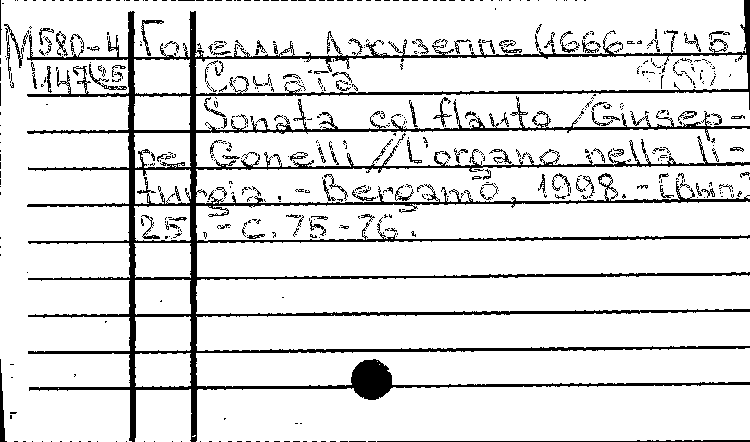 М 580-4 Гонелли, Джузеппе (1666-1745)
147/25 Соната
Sonata col flauto / Giusep-
pe Gonelli // L'organo nella li-
turgia. - Bergamo, 1998. - [Вып.]
25. - с. 75-76.